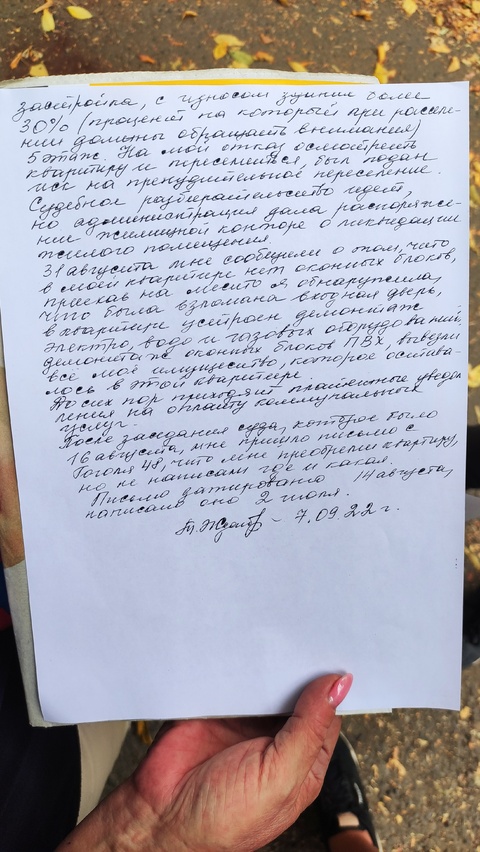 застройка, с износом здания более
30% (процент на который при расселе-
нии должны обращать внимания)
5 этаж. На мой отказ осмотреть
квартиру и переселиться, был подан
иск на принудительное переселение.
Судебное разбирательство идет,
но администрация дала распоряже-
ние жилищной конторе о ликвидации
жилого помещения.
31 августа мне сообщили о том, что
в моей квартире нет оконных блоков,
приехав на место я обнаружила,
что была взломана входная дверь,
в квартире устроен демонтаж
электро, водо и газовых оборудований,
демонтаж оконных блоков ПВХ, вывезли
всё моё имущество, которое остава-
лось в этой квартире.
До сих пор приходят платежные уведом
ления на оплату коммунальных
услуг.
После заседания суда, которое было
16 августа, мне пришло письмо с
Гоголя 48, что мне преобрели квартиру,
но не написали где и какая.
Письмо датировано 14 августа,
написано оно 2 июля.
7.09.22 г.